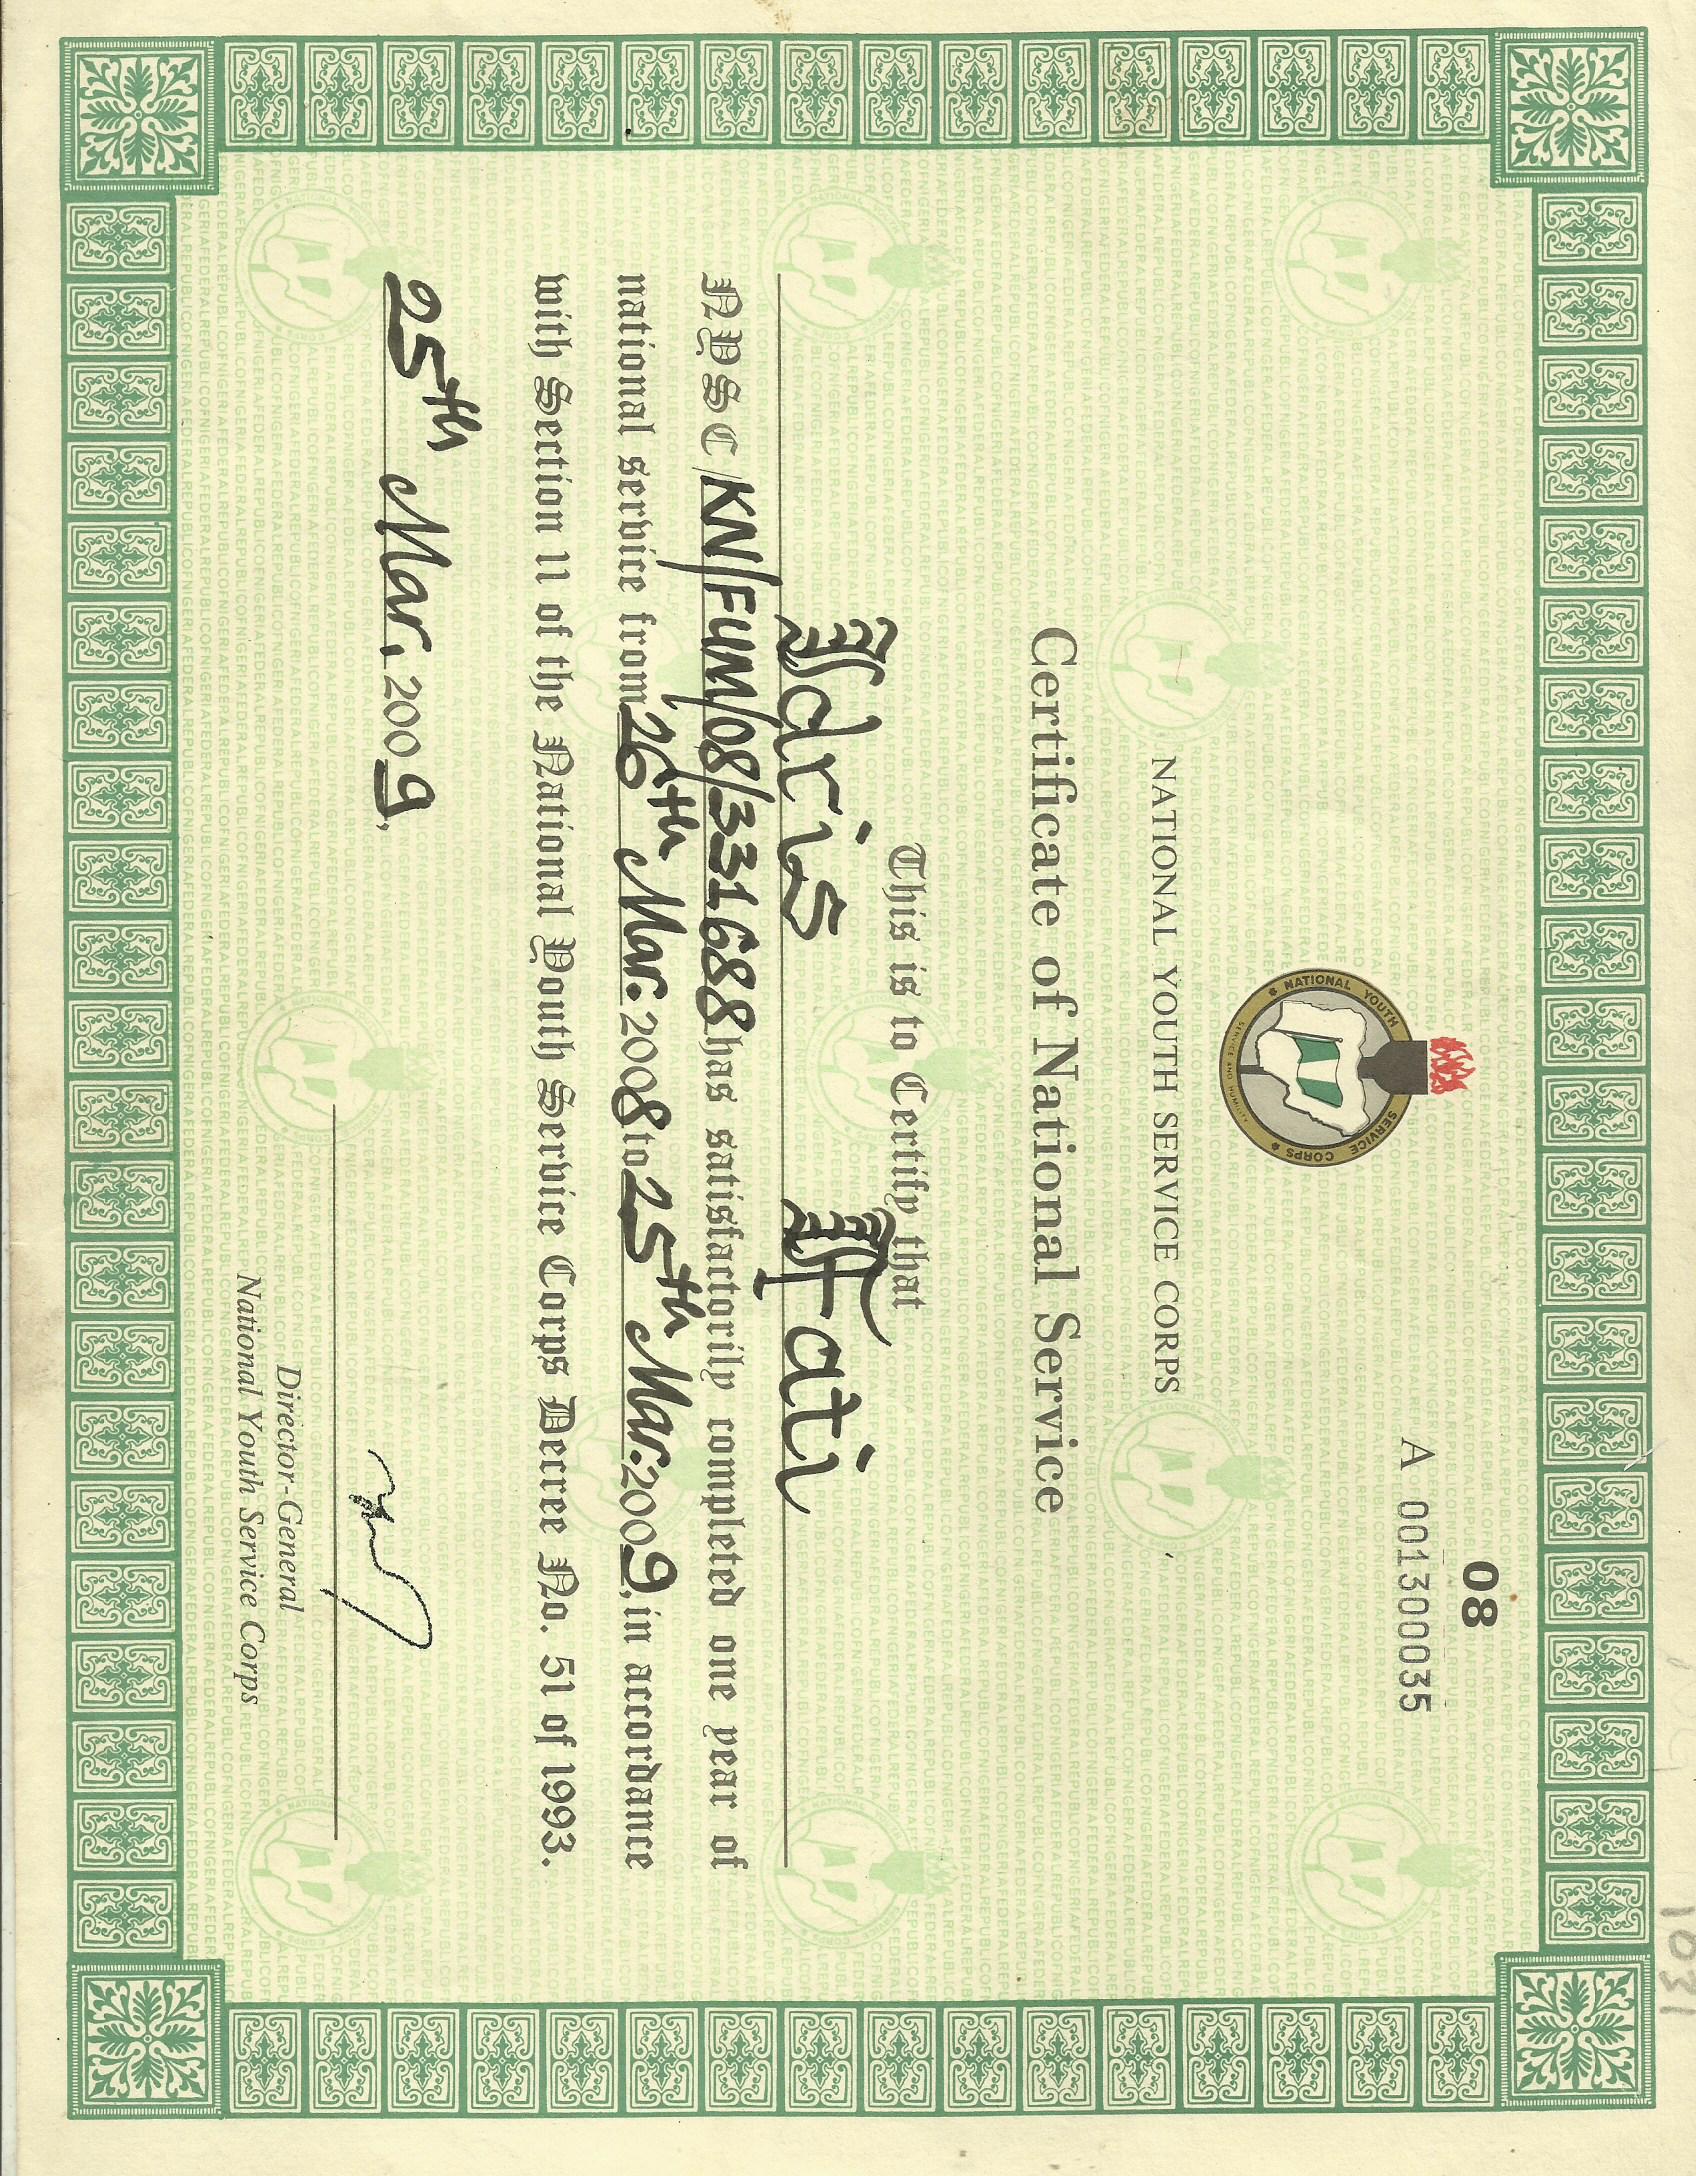 08
A 001300035
NATIONAL YOUTH
SERVICE CORPS
SERVICE AND HUMILITY
NATIONAL YOUTH SERVICE CORPS
Certificate of National Service
This is to Certify that
Idris Fati
NYSC/KN/FUM/08/331688 has satisfactorily completed one year of
national service from 26th Mar: 2008 to 25th Mar: 2009, in accordance
with Section 11 of the National Youth Service Corps Decree No. 51 of 1993.
25th Mar. 2009,
Director-General
National Youth Service Corps
1031